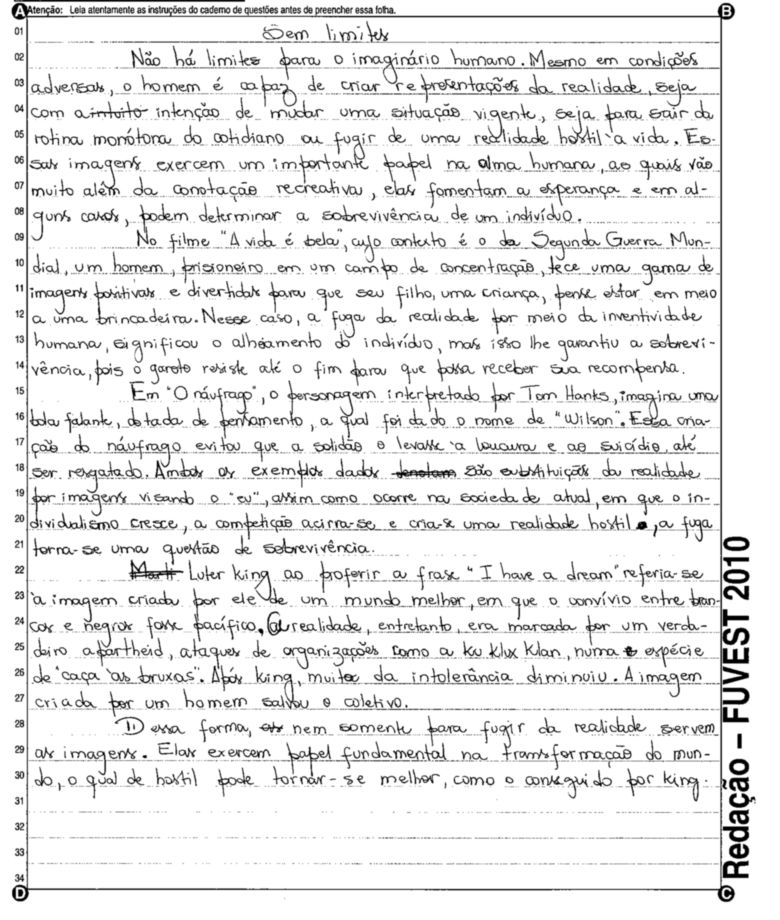 A Atenção: Leia atentamente as instruções do caderno de questões antes de preencher essa folha. B
01 Sem limites
02 Não há limites para o imaginário humano. Mesmo em condições
03 adversas, o homem é capaz de criar representações da realidade, seja
04 com a intuito intenção de mudar uma situação vigente, seja para sair da
05 rotina monótona do cotidiano ou fugir de uma realidade hostil à vida. Es-
06 sas imagens exercem um importante papel na alma humana, as quais vão
07 muito além da conotação recreativa, elas fomentam a esperança e em al-
08 guns casos, podem determinar a sobrevivência de um indivíduo.
09 No filme "A vida é bela", cujo contexto é o da Segunda Guerra Mun-
10 dial, um homem, prisioneiro em um campo de concentração, tece uma gama de
11 imagens positivas e divertidas para que seu filho, uma criança, pense estar em meio
12 a uma brincadeira. Nesse caso, a fuga da realidade por meio da inventividade
13 humana, significou o alheamento do indivíduo, mas isso lhe garantiu a sobrevi-
14 vência, pois o garoto resiste até o fim para que possa receber sua recompensa.
15 Em "O náufrago", o personagem interpretado por Tom Hanks, imagina uma
16 bola falante, dotada de pensamento, a qual foi dado o nome de "Wilson". Essa cria-
17 ção do náufrago evitou que a solidão o levasse à loucura e ao suicídio, até
18 ser resgatado. Ambos os exemplos dados denotam são substituições da realidade
19 por imagens visando o "eu", assim como ocorre na sociedade atual, em que o in-
20 dividualismo cresce, a competição acirra-se e cria-se uma realidade hostil, a fuga
21 torna-se uma questão de sobrevivência.
22 Marti Luter King ao proferir a frase "I have a dream" referia-se
23 à imagem criada por ele de um mundo melhor, em que o convívio entre bran-
24 cos e negros fosse pacífico. A realidade, entretanto, era marcada por um verda-
25 deiro apartheid, ataques de organizações como a Ku Klux Klan, numa espécie
26 de "caça às bruxas". Após King, muito da intolerância diminuiu. A imagem
27 criada por um homem salvou o coletivo.
28 D essa forma, as nem somente para fugir da realidade servem
29 as imagens. Elas exercem papel fundamental na transformação do mun-
30 do, o qual de hostil pode tornar-se melhor, como o conseguido por King.
31
32
33
34
D C
Redação – FUVEST 2010